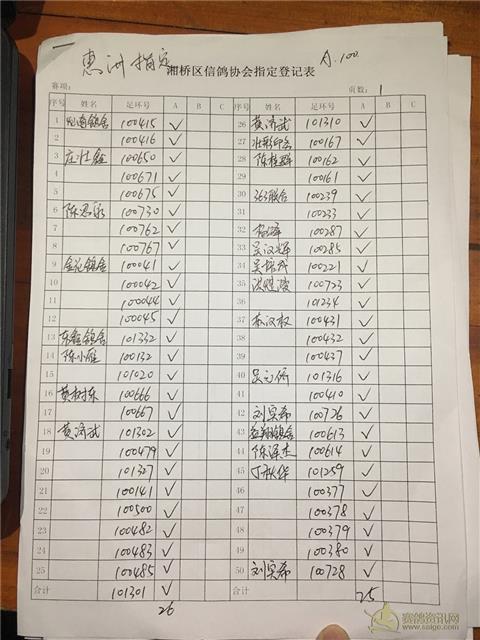 惠州指定 A.100
湘桥区信鸽协会指定登记表
赛项: 页数: 1
序号 姓名 足环号 A B C 序号 姓名 足环号 A B C
1 鸽舍 100415 ✓ 26 黄济武 101310 ✓
2 100416 ✓ 27 100167 ✓
3 庄壮鑫 100650 ✓ 28 陈桂群 100162 ✓
4 100671 ✓ 29 100161 ✓
5 100675 ✓ 30 363联合 100239 ✓
6 陈思泳 100730 ✓ 31 100233 ✓
7 100762 ✓ 32 100287 ✓
8 100767 ✓ 33 吴汉辉 100285 ✓
9 金苑鸽舍 100041 ✓ 34 吴培成 100221 ✓
10 100042 ✓ 35 洪 100723 ✓
11 100044 ✓ 36 101234 ✓
12 100045 ✓ 37 林汉权 100431 ✓
13 东鑫鸽舍 101332 ✓ 38 100432 ✓
14 陈小雁 100132 ✓ 39 100437 ✓
15 101020 ✓ 40 吴 101316 ✓
16 黄树东 100666 ✓ 41 100410 ✓
17 100667 ✓ 42 刘奕希 100726 ✓
18 黄济武 101302 ✓ 43 翔鸽舍 100613 ✓
19 100479 ✓ 44 陈泽杰 100614 ✓
20 101327 ✓ 45 丁秋华 101259 ✓
21 100141 ✓ 46 100377 ✓
22 100500 ✓ 47 100378 ✓
23 100482 ✓ 48 100379 ✓
24 100483 ✓ 49 100380 ✓
25 100485 ✓ 50 刘奕希 100728 ✓
合计 101301 ✓ 合计 25
26
赛鸽资讯网
www.saige.com